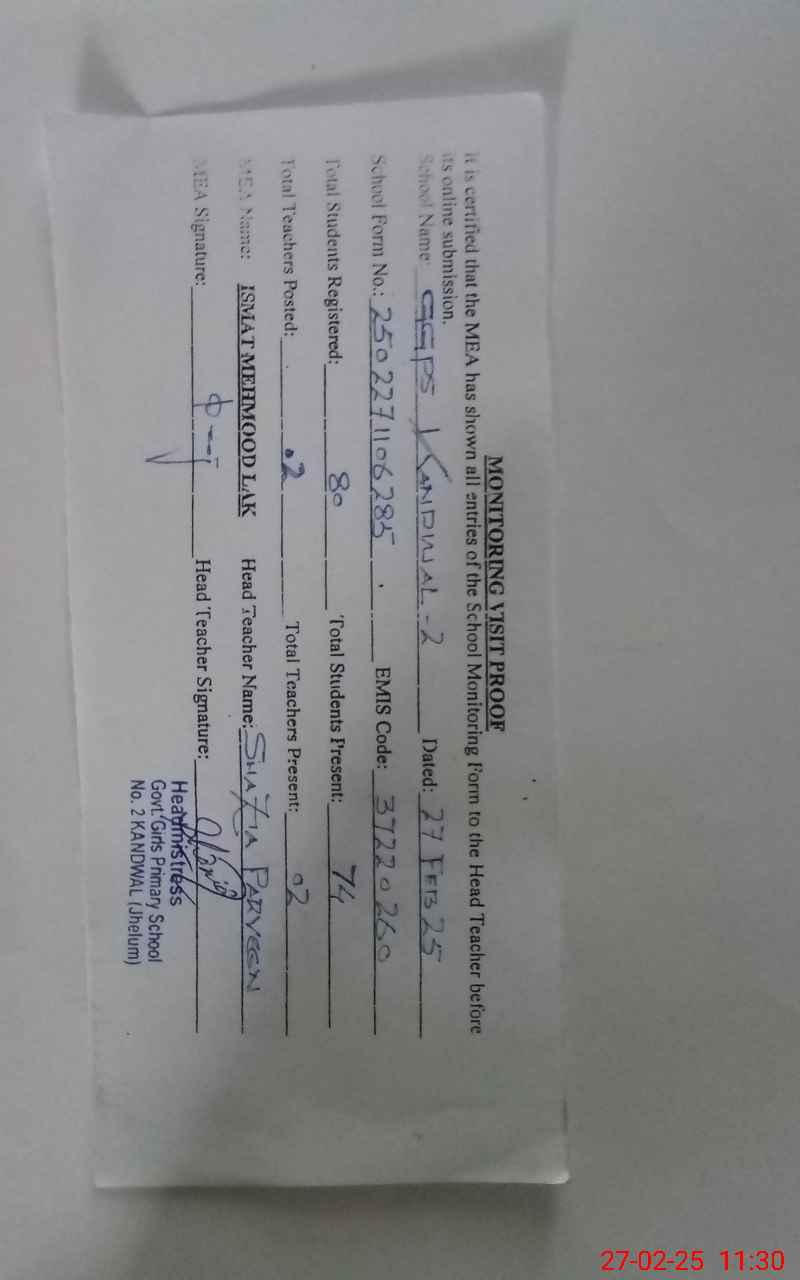 MONITORING VISIT PROOF
It is certified that the MEA has shown all entries of the School Monitoring Form to the Head Teacher before
its online submission.
School Name: GGPS KANDWAL-2 Dated: 27 FEB 25
School Form No.: 2502271106285 EMIS Code: 37220260
Total Students Registered: 80 Total Students Present: 74
Total Teachers Posted: .2 Total Teachers Present: 02
MEA Name: ISMAT MEHMOOD LAK Head Teacher Name: SHAZIA PARVEEN
MEA Signature: Head Teacher Signature:
Headmistress
Govt. Girls Primary School
No. 2 KANDWAL (Jhelum)
27-02-25 11:30